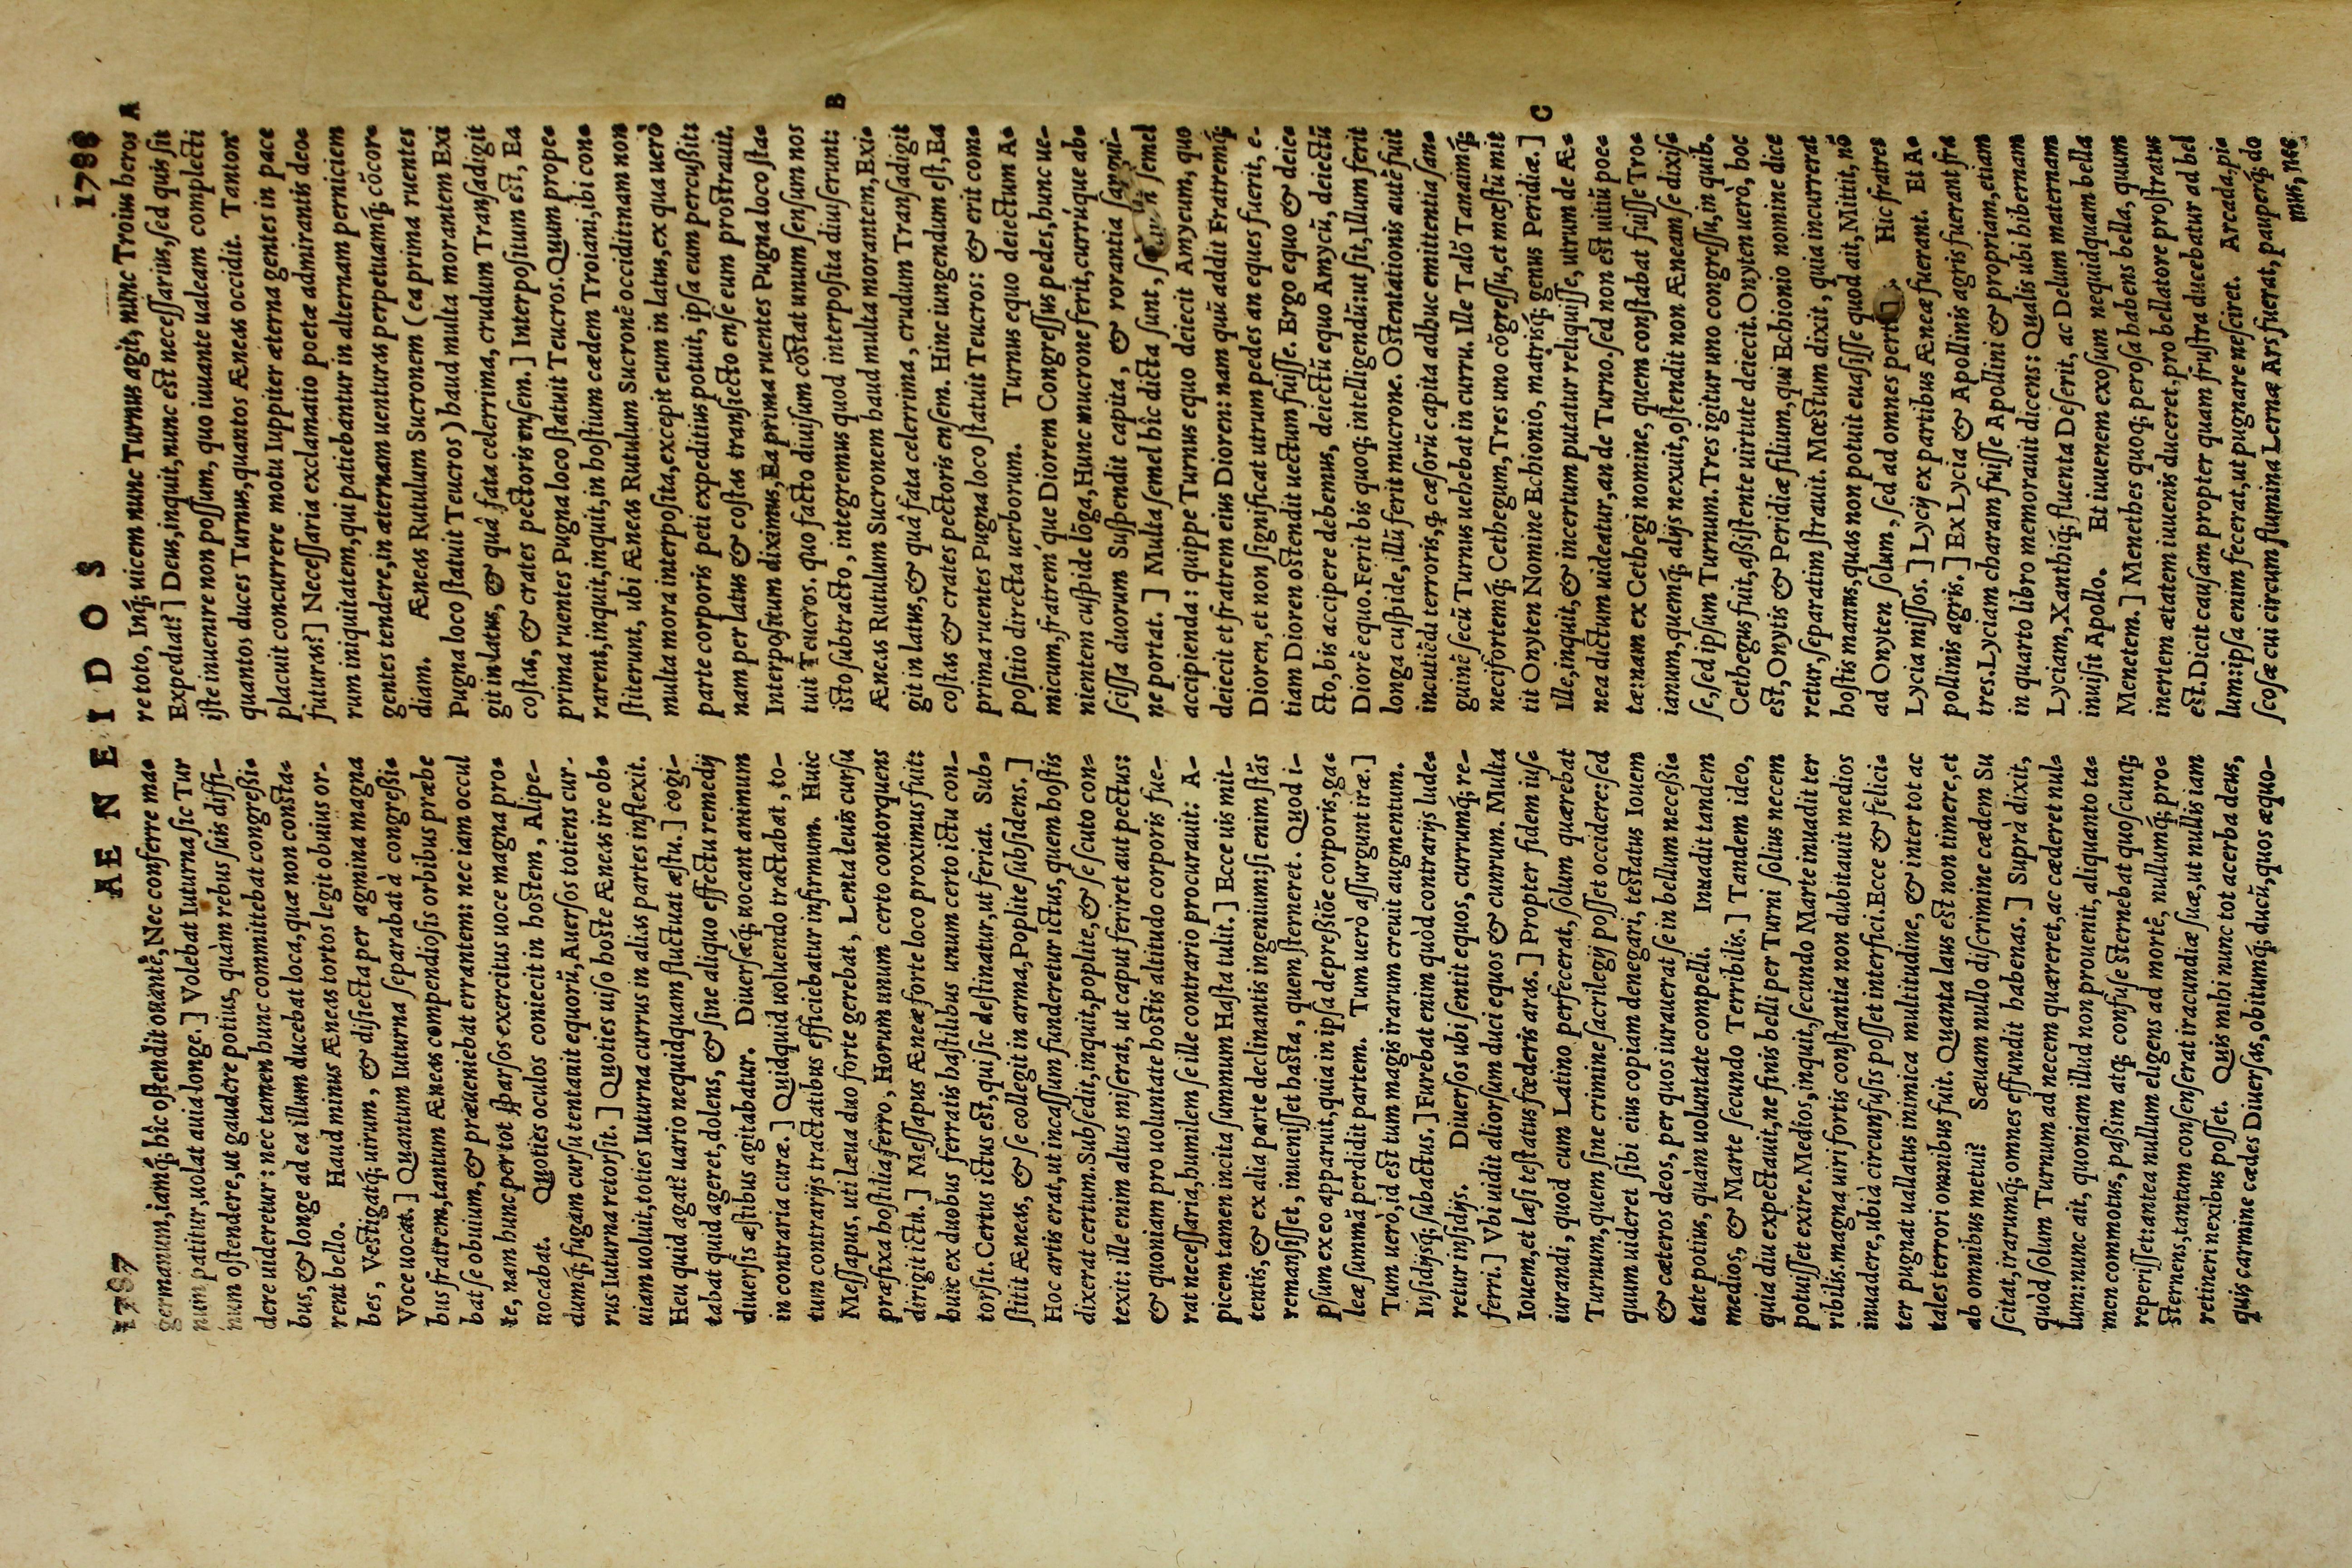 1787
AENEIDOS
1788
germanum, iamq́; hîc ostendit ouantē, Nec conferre ma-
num patitur, uolat auia longe.] Volebat Iuturna sic Tur
num ostendere, ut gaudere potius, quàm rebus suis diffi-
dere uideretur: nec tamen hunc committebat congreßi-
bus, & longe ad ea illum ducebat loca, quæ non consta-
rent bello. Haud minus Æneas tortos legit obuius or-
bes, Vestigatq́; uirum, & disiecta per agmina magna
Voce uocat.] Quantum Iuturna separabat à congreßi-
bus fratrem, tantum Æneas compendiosis orbibus præbe
bat se obuium, & præueniebat errantem: nec iam occul
te, nam hunc per tot sparsos exercitus uoce magna pro-
uocabat. Quoties oculos coniecit in hostem, Alipe-
dumq́; fugam cursu tentauit equorū, Auersos totiens cur-
rus Iuturna retorsit.] Quoties uiso hoste Æneas ire ob-
uiam uoluit, toties Iuturna currus in alias partes inflexit.
Heu quid agat? uario nequidquam fluctuat æstu.] cogi-
tabat quid ageret, dolens, & sine aliquo effectu remedij
diuersis æstibus agitabatur. Diuersæq́; uocant animum
in contraria curæ.] Quidquid uoluendo tractabat, to-
tum contrarijs tractatibus efficiebatur infirmum. Huic
Messapus, uti læua duo forte gerebat, Lenta leuis cursu
præfixa hostilia ferro, Horum unum certo contorquens
dirigit ictu.] Messapus Æneæ forte loco proximus fuit:
huic ex duobus ferratis hastilibus unum certo ictu con-
torsit. Certus ictus est, qui sic destinatur, ut feriat. Sub-
stitit Æneas, & se collegit in arma, Poplite subsidens.]
Hoc artis erat, ut incassum funderetur ictus, quem hostis
dixerat certum. Subsedit, inquit, poplite, & se scuto con-
texit: ille enim altus miserat, ut caput feriret aut pectus:
& quoniam pro uoluntate hostis altitudo corporis fue-
rat necessaria, humilem se ille contrario procurauit: A-
picem tamen incita summum Hasta tulit.] Ecce uis mit-
tentis, & ex alia parte declinantis ingenium: si enim stās
remansisset, inuenisset hasta, quem sterneret. Quod i-
psum ex eo apparuit, quia in ipsa depreßiōe corporis, ga-
leæ summā perdidit partem. Tum uerò assurgunt iræ.]
Tum uerò, id est tum magis irarum creuit augmentum.
Insidijsq́; subactus.] Furebat enim quòd contrarijs lude-
retur insidijs. Diuersos ubi sentit equos, currumq́; re-
ferri.] Vbi uidit aliorsum duci equos & currum. Multa
Iouem, et læsi testatus fœderis aras.] Propter fidem ius-
iurandi, quod cum Latino perfecerat, solum quærebat
Turnum, quem sine crimine sacrilegij posset occidere: sed
quum uideret sibi eius copiam denegari, testatus Iouem
& cæteros deos, per quos iurauerat se in bellum neceßi-
tate potius, quàm uoluntate compelli. Inuadit tandem
medios, & Marte secundo Terribilis.] Tandem ideo,
quia diu expectauit, ne finis belli per Turni solius necem
potuisset exire. Medios, inquit, secundo Marte inuadit ter
ribilis. magna uiri fortis constantia non dubitauit medios
inuadere, ubi à circunfusis posset interfici. Ecce & felici-
ter pugnat uallatus inimica multitudine, & inter tot ac
tales terrori omnibus fuit. Quanta laus est non timere, et
ab omnibus metui? Sæuam nullo discrimine cædem Su
scitat, irarumq́; omnes effundit habenas.] Suprà dixit,
quòd solum Turnum ad necem quæreret, ac cæderet nul-
lum: nunc ait, quoniam illud non prouenit, aliquanto ta-
men commotus, paßim atq; confuse sternebat quoscunq;
reperisset: antea nullum eligens ad mortē, nullumq́; pro-
sternens, tantum consenserat iracundiæ suæ, ut nullis iam
retineri nexibus posset. Quis mihi nunc tot acerba deus,
quis carmine cædes Diuersas, obitumq́; ducū, quos æquo-
re toto, Inq́; uicem nunc Turnus agit, nunc Troius heros A
Expediat?] Deus, inquit, nunc est necessarius, sed quis sit
iste inuenire non possum, quo iuuante ualeam complecti
quantos duces Turnus, quantos Æneas occidit. Tanton'
placuit concurrere motu Iuppiter æterna gentes in pace
futuras?] Necessaria exclamatio poetæ admirantis deo-
rum iniquitatem, qui patiebantur in alternam perniciem
gentes tendere, in æternam uenturas perpetuamq́; cōcor-
diam. Æneas Rutulum Sucronem (ea prima ruentes
Pugna loco statuit Teucros) haud multa morantem Exi
git in latus, & quâ fata celerrima, crudum Transadigit
costas, & crates pectoris ensem.] Interpositum est, Ea
prima ruentes Pugna loco statuit Teucros. Quum prope-
rarent, inquit, inquit, in hostium cædem Troiani, ibi con-
stiterunt, ubi Æneas Rutulum Sucronē occidit: nam non
multa mora interposita, excepit eum in latus, ex qua uerò
parte corporis peti expeditius potuit, ipsa eum percußit:
nam per latus & costas transiecto ense eum prostrauit.
Interpositum diximus, Ea prima ruentes Pugna loco sta-
tuit Teucros. quo facto diuisum cōstat unum sensum nos
isto subtracto, integremus quod interposita diuiserunt: B
Æneas Rutulum Sucronem haud multa morantem, Exi-
git in latus, & quâ fata celerrima, crudum Transadigit
costas & crates pectoris ensem. Hinc iungendum est, Ea
prima ruentes Pugna loco statuit Teucros: & erit com-
positio directa uerborum. Turnus equo deiectum A-
micum, fratreḿque Diorem Congressus pedes, hunc ue-
nientem cuspide lōga, Hunc mucrone ferit, currúque ab-
scissa duorum Suspendit capita, & rorantia sangui-
ne portat.] Multa semel hîc dicta sunt, semel
accipienda: quippe Turnus equo deiecit Amycum, quo
deiecit et fratrem eius Dioren: nam quū addit Fratremq́;
Dioren, et non significat utrum pedes an eques fuerit, e-
tiam Dioren ostendit uectum fuisse. Ergo equo & deie-
cto, bis accipere debemus, deiectū equo Amycū, deiectū
Diorē equo. Ferit bis quoq; intelligendū: ut sit, Illum ferit
longa cuspide, illū ferit mucrone. Ostentationis autē fuit
incutiēdi terroris, q̨ cæsorū capita adhuc emittentia san-
guinē secū Turnus uehebat in curru. Ille Talō Tanaimq́;
neci fortemq́; Cethegum, Tres uno cōgressu, et mæstū mit C
tit Onyten Nomine Echionio, matrisq́; genus Peridiæ.]
Ille, inquit, & incertum putatur reliquisse, utrum de Æ-
nea dictum uideatur, an de Turno. sed non est uitiū poe-
tæ: nam ex Cethegi nomine, quem constabat fuisse Tro-
ianum, quemq́; alijs nexuit, ostendit non Æneam se dixis-
se, sed ipsum Turnum. Tres igitur uno congressu, in quib.
Cethegus fuit, aßistente uirtute deiecit. Onyten uerò, hoc
est, Onytis & Peridiæ filium, qui Echionio nomine dice
retur, separatim strauit. Mœstum dixit, quia incurrerat
hostis manus, quas non potuit euasisse quod ait, Mittit, nō
ad Onyten solum, sed ad omnes pertinet. Hic fratres
Lycia missos.] Lycij ex partibus Æneæ fuerant. Et A-
pollinis agris.] Ex Lycia & Apollinis agris fuerant fra
tres. Lyciam charam fuisse Apollini & propriam, etiam
in quarto libro memorauit dicens: Qualis ubi hibernam
Lyciam, Xanthiq́; fluenta Deserit, ac Delum maternam
inuisit Apollo. Et iuuenem exosum nequidquam bella
Menetem.] Menethes quoq; perosa habens bella, quum
inertem ætatem iuuenis duceret, pro bellatore prostratus
est. Dicit causam propter quam frustra ducebatur ad bel
lum: ipsa enim fecerat, ut pugnare nesciret. Arcada, pi-
scosæ cui circum flumina Lernæ Ars fuerat, pauperq́; do
mus, nec